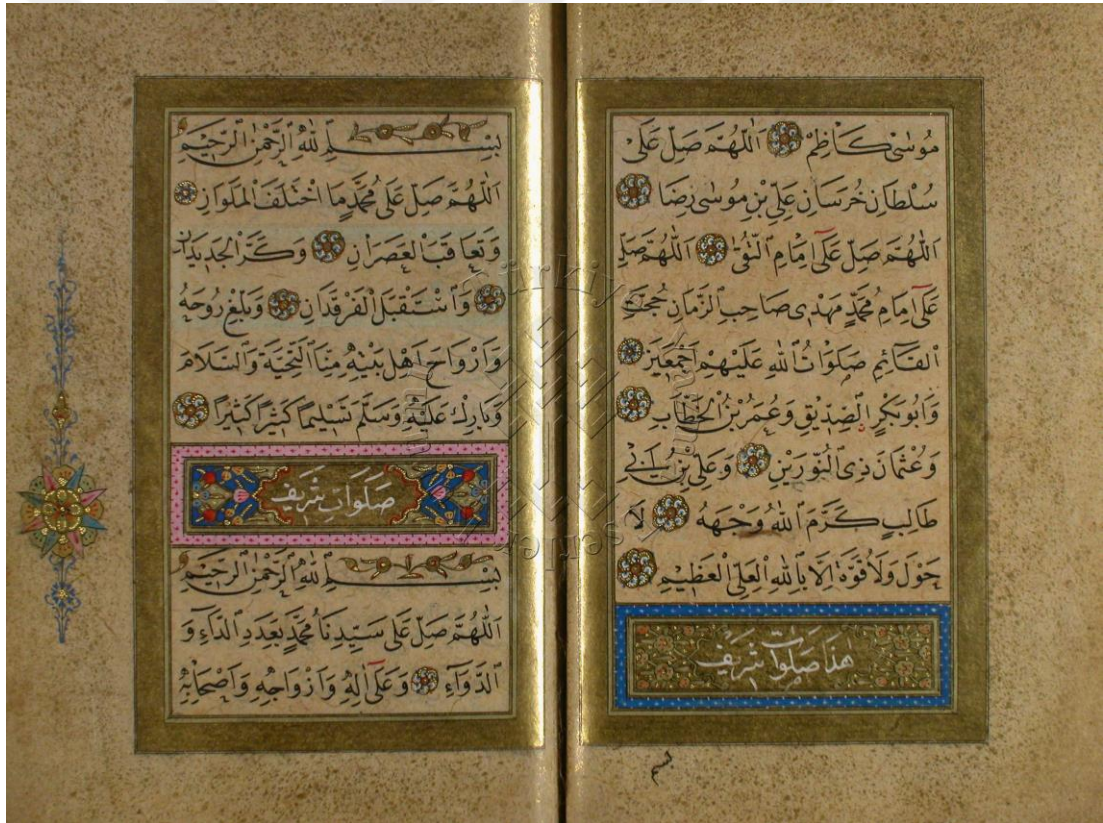 مُوسٰى كَاظِمْ اَللّٰهُمَّ صَلِّ عَلٰى
سُلْطَانِ خُرَسَانِ عَلِيِّ بْنِ مُوسٰى رِضَا
اَللّٰهُمَّ صَلِّ عَلٰى اِمَامِ النَّقِى اَللّٰهُمَّ صَلِّ
عَلٰى اِمَامِ مُحَمَّدٍ مَهْدِى صَاحِبِ الزَّمَانِ حُجَّتِ
الْقَائِمِ صَلَوَاتُ اللّٰهِ عَلَيْهِمْ اَجْمَعِينَ
وَاَبُو بَكْرٍ الصِّدِّيقِ وَعُمَرُ بْنُ الْخَطَّابِ
وَعُثْمَانَ ذِى النُّورَيْنِ وَعَلِىِّ بْنِ اَبِى
طَالِبٍ كَرَّمَ اللّٰهُ وَجْهَهُ لَا
حَوْلَ وَلَا قُوَّةَ اِلَّا بِاللّٰهِ الْعَلِىِّ الْعَظِيمِ
هذا صلوات شريف
بسم
بِسْمِ اللّٰهِ الرَّحْمٰنِ الرَّحِيمِ
اَللّٰهُمَّ صَلِّ عَلٰى مُحَمَّدٍ مَا اخْتَلَفَ الْمَلَوَانِ
وَتَعَاقَبَ الْعَصْرَانِ وَكَرَّ الْجَدِيدَانِ
وَاسْتَقْبَلَ الْفَرْقَدَانِ وَبَلِّغْ رُوحَهُ
وَاَرْوَاحَ اَهْلِ بَيْتِهِ مِنَّا التَّحِيَّةَ وَالسَّلَامَ
وَبَارِكْ عَلَيْهِ وَسَلِّمْ تَسْلِيمًا كَثِيرًا كَثِيرًا
صلوات شريف
بِسْمِ اللّٰهِ الرَّحْمٰنِ الرَّحِيمِ
اَللّٰهُمَّ صَلِّ عَلٰى سَيِّدِنَا مُحَمَّدٍ بِعَدَدِ الدَّاءِ وَ
الدَّوَاءِ وَعَلٰى اٰلِهِ وَاَزْوَاجِهِ وَاَصْحَابِهِ